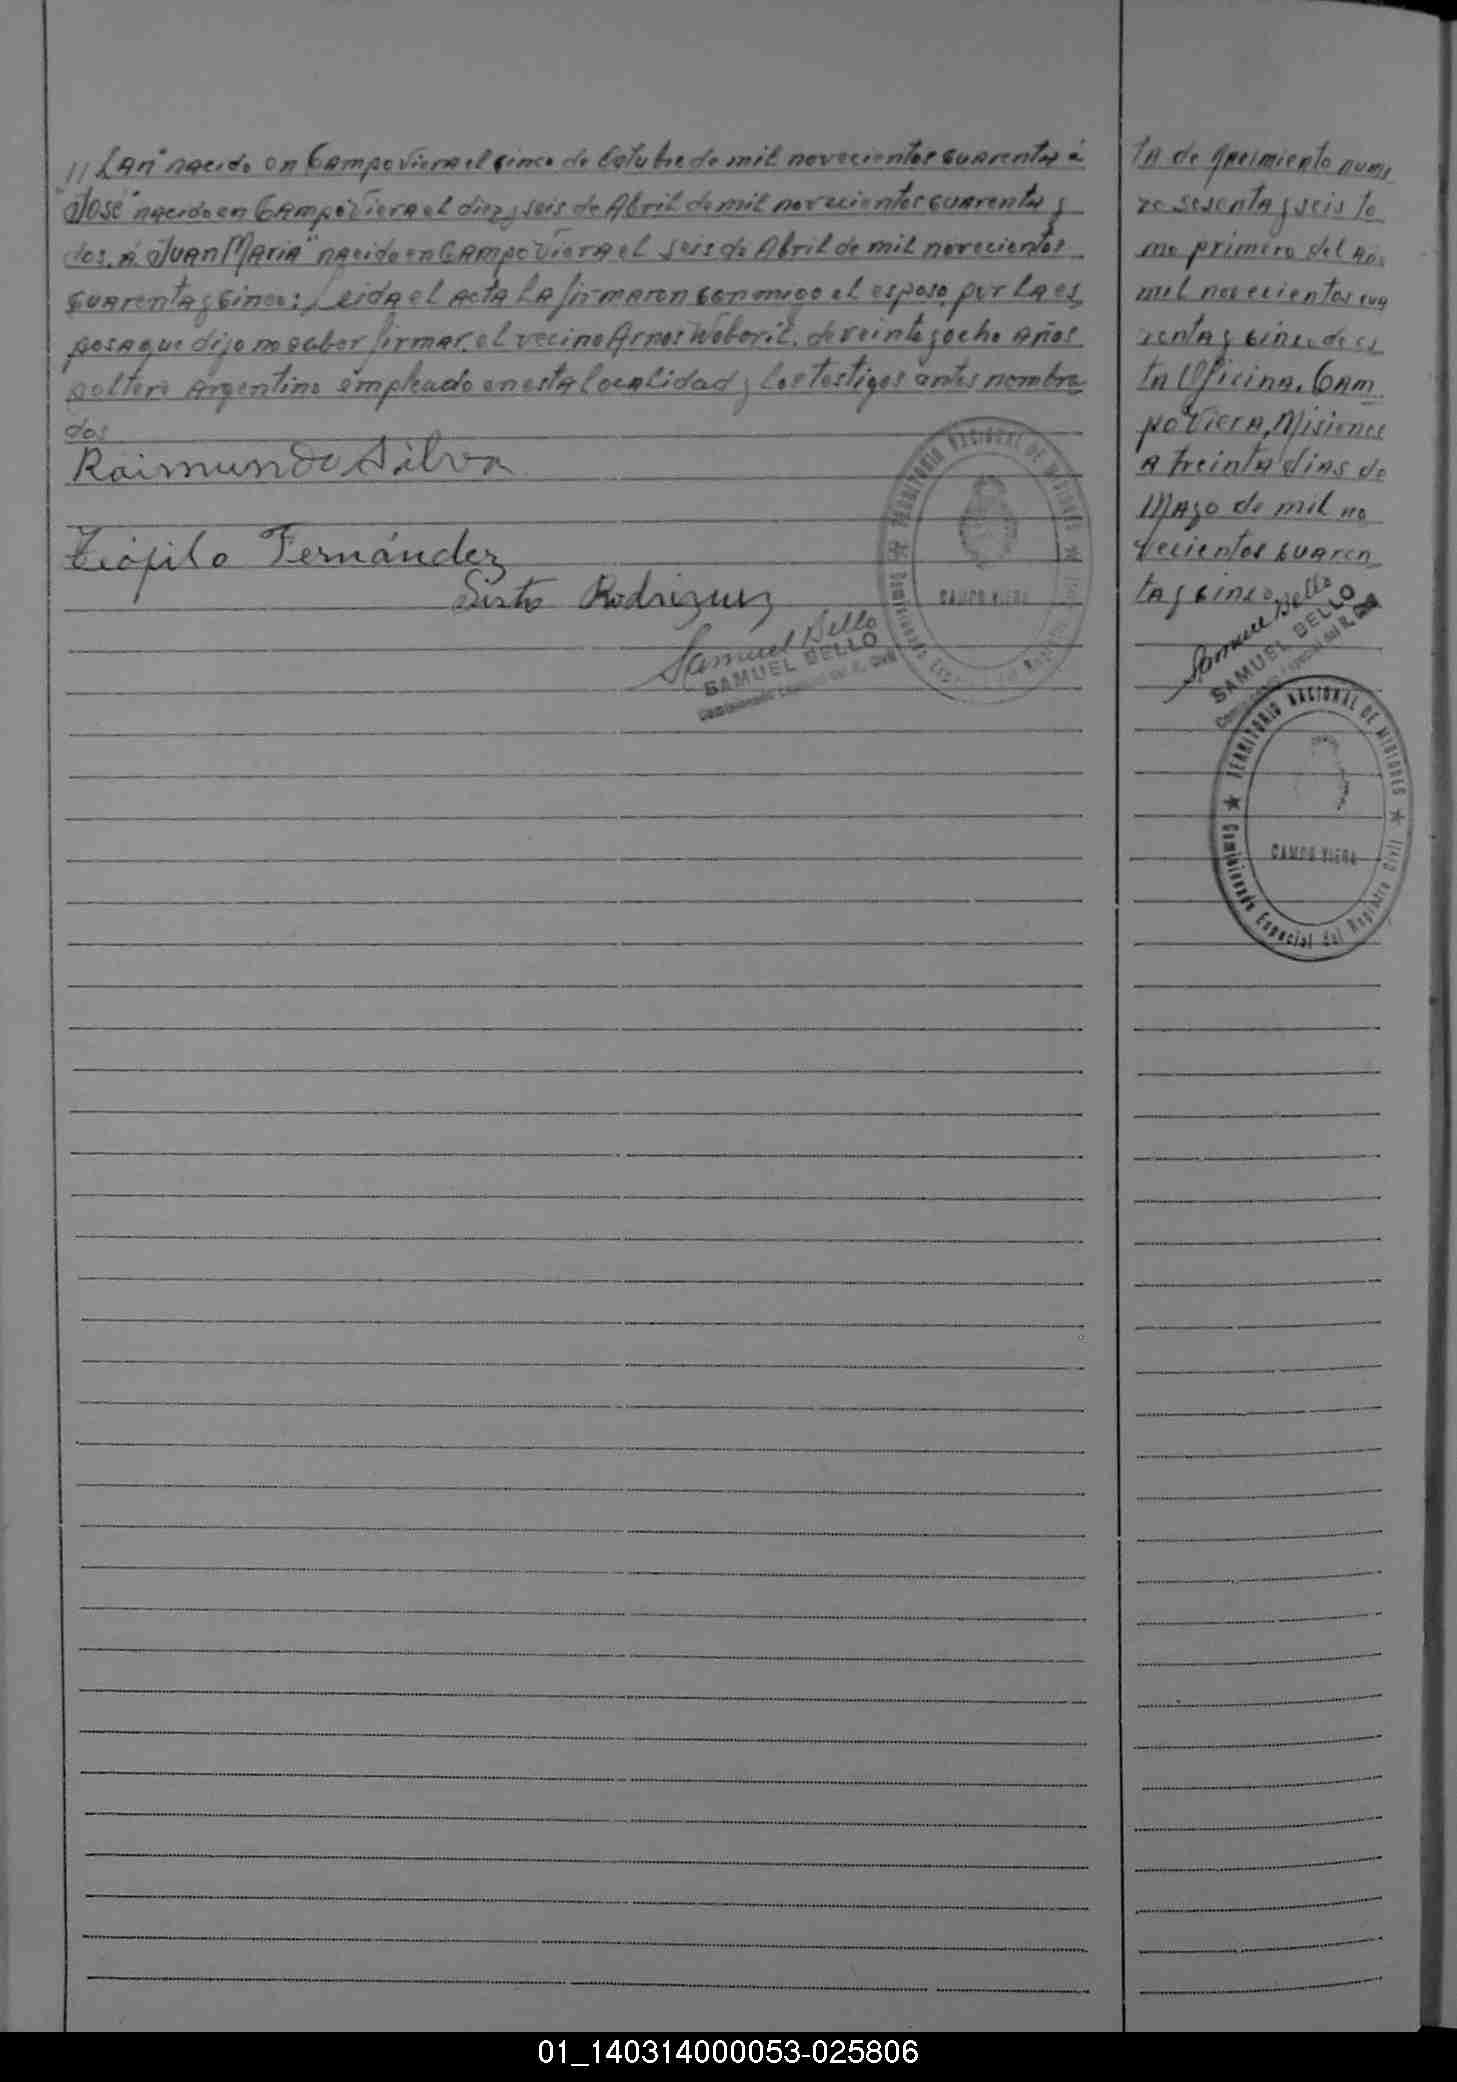 // Lan" nacido en Campo Viera el cinco de Octubre de mil novecientos cuarenta, á
"José" nacido en Campo Viera el diez y seis de Abril de mil novecientos cuarenta y
dos, á "Juan Maria" nacido en Campo Viera el seis de Abril de mil novecientos
cuarenta y cinco: Leida el acta la firmaron conmigo el esposo, por la es
posa que dijo no saber firmar, el vecino Arnos de veinte y ocho años
soltero Argentino empleado en esta localidad y los testigos antes nombra
dos
Raimundo Silva
Teófilo Fernández
Sixto Rodriguez
Samuel Bello
SAMUEL BELLO
Comisionado Especial del R. Civil
TERRITORIO NACIONAL DE MISIONES
CAMPO VIERA
Comisionado Especial del Registro Civil
ta de nacimiento nume
ro sesenta y seis to
mo primero del año
mil novecientos cua
renta y cinco de es
ta Oficina. Cam
po Viera, Misiones
a treinta dias de
Mayo de mil no
vecientos cuaren
ta y cinco
Samuel Bello
SAMUEL BELLO
Comisionado Especial del R. Civil
TERRITORIO NACIONAL DE MISIONES
CAMPO VIERA
Comisionado Especial del Registro Civil
01_140314000053-025806